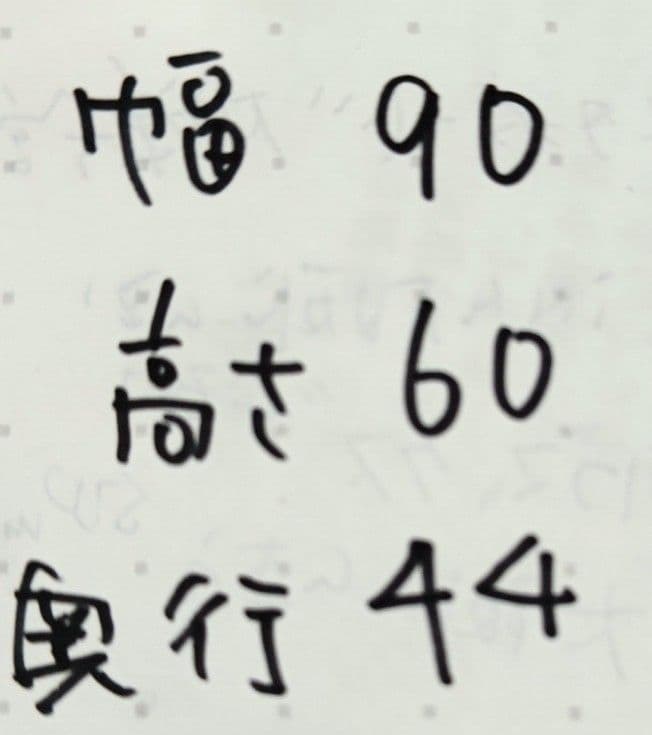 幅 90
高さ 60
奥行 44